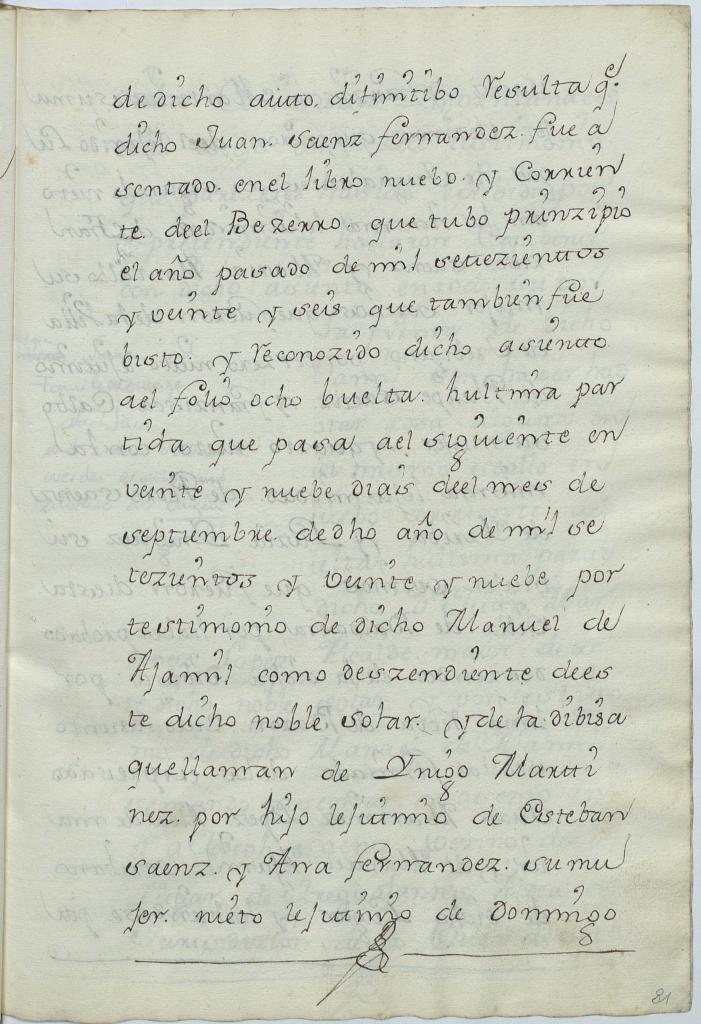 de dicho autto. difinitibo Resulta q.e
dicho Juan. saenz fernandez. fue a
sentado. en el libro nuebo. y Corrien
te. deel Bezerro. que tubo prinzipio
el año pasado de mil setezienttos
y veinte y seis que tambien fue
bisto. y Reconozido dicho asientto
ael folio ocho buelta. hultima par
tida que pasa ael siguiente en
veinte y nuebe dias deel mes de
septiembre. de dho año de mil se
tezientos y veinte y nuebe por
testimonio de dicho Manuel de
Ajamil como deszendiente de es
te dicho noble solar. y de la dibisa
que llaman de Ynigo Martti
nez. por hijo lejitimo de Esteban
saenz. y Ana fernandez. su mu
jer. nieto lejitimo de Domingo
81